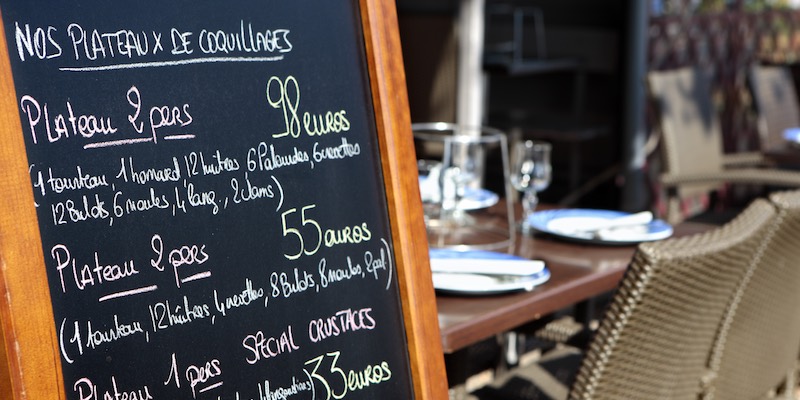 NOS PLATEAUX DE COQUILLAGES
Plateau 2 pers 98 euros
(1 tourteau, 1 homard 12 huîtres 6 Palourdes, 6 crevettes
12 Bulots, 6 moules, 4 lang., 2 clams)
Plateau 2 pers 55 euros
(1 tourteau, 12 huîtres, 4 crevettes, 8 Bulots, 8 moules, 2 pal)
Plateau 1 pers SPECIAL CRUSTACES
33 euros